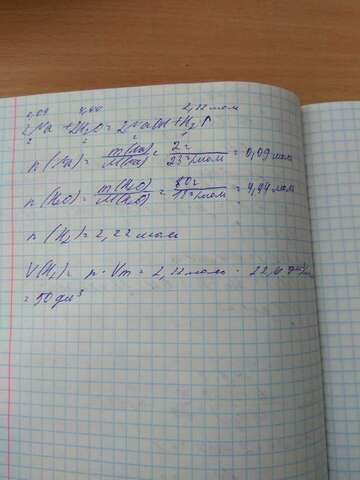 0,09 4,44 2,22 моль
2Na + 2H₂O = 2NaOH + H₂↑
2 2 2
n(Na) = m(Na)/M(Na) = 2г/23г/моль = 0,09 моль
n(H₂O) = m(H₂O)/M(H₂O) = 80г/18г/моль = 4,44 моль
n(H₂) = 2,22 моль
V(H₂) = n · Vm = 2,22 моль · 22,4 дм³/моль
= 50 дм³